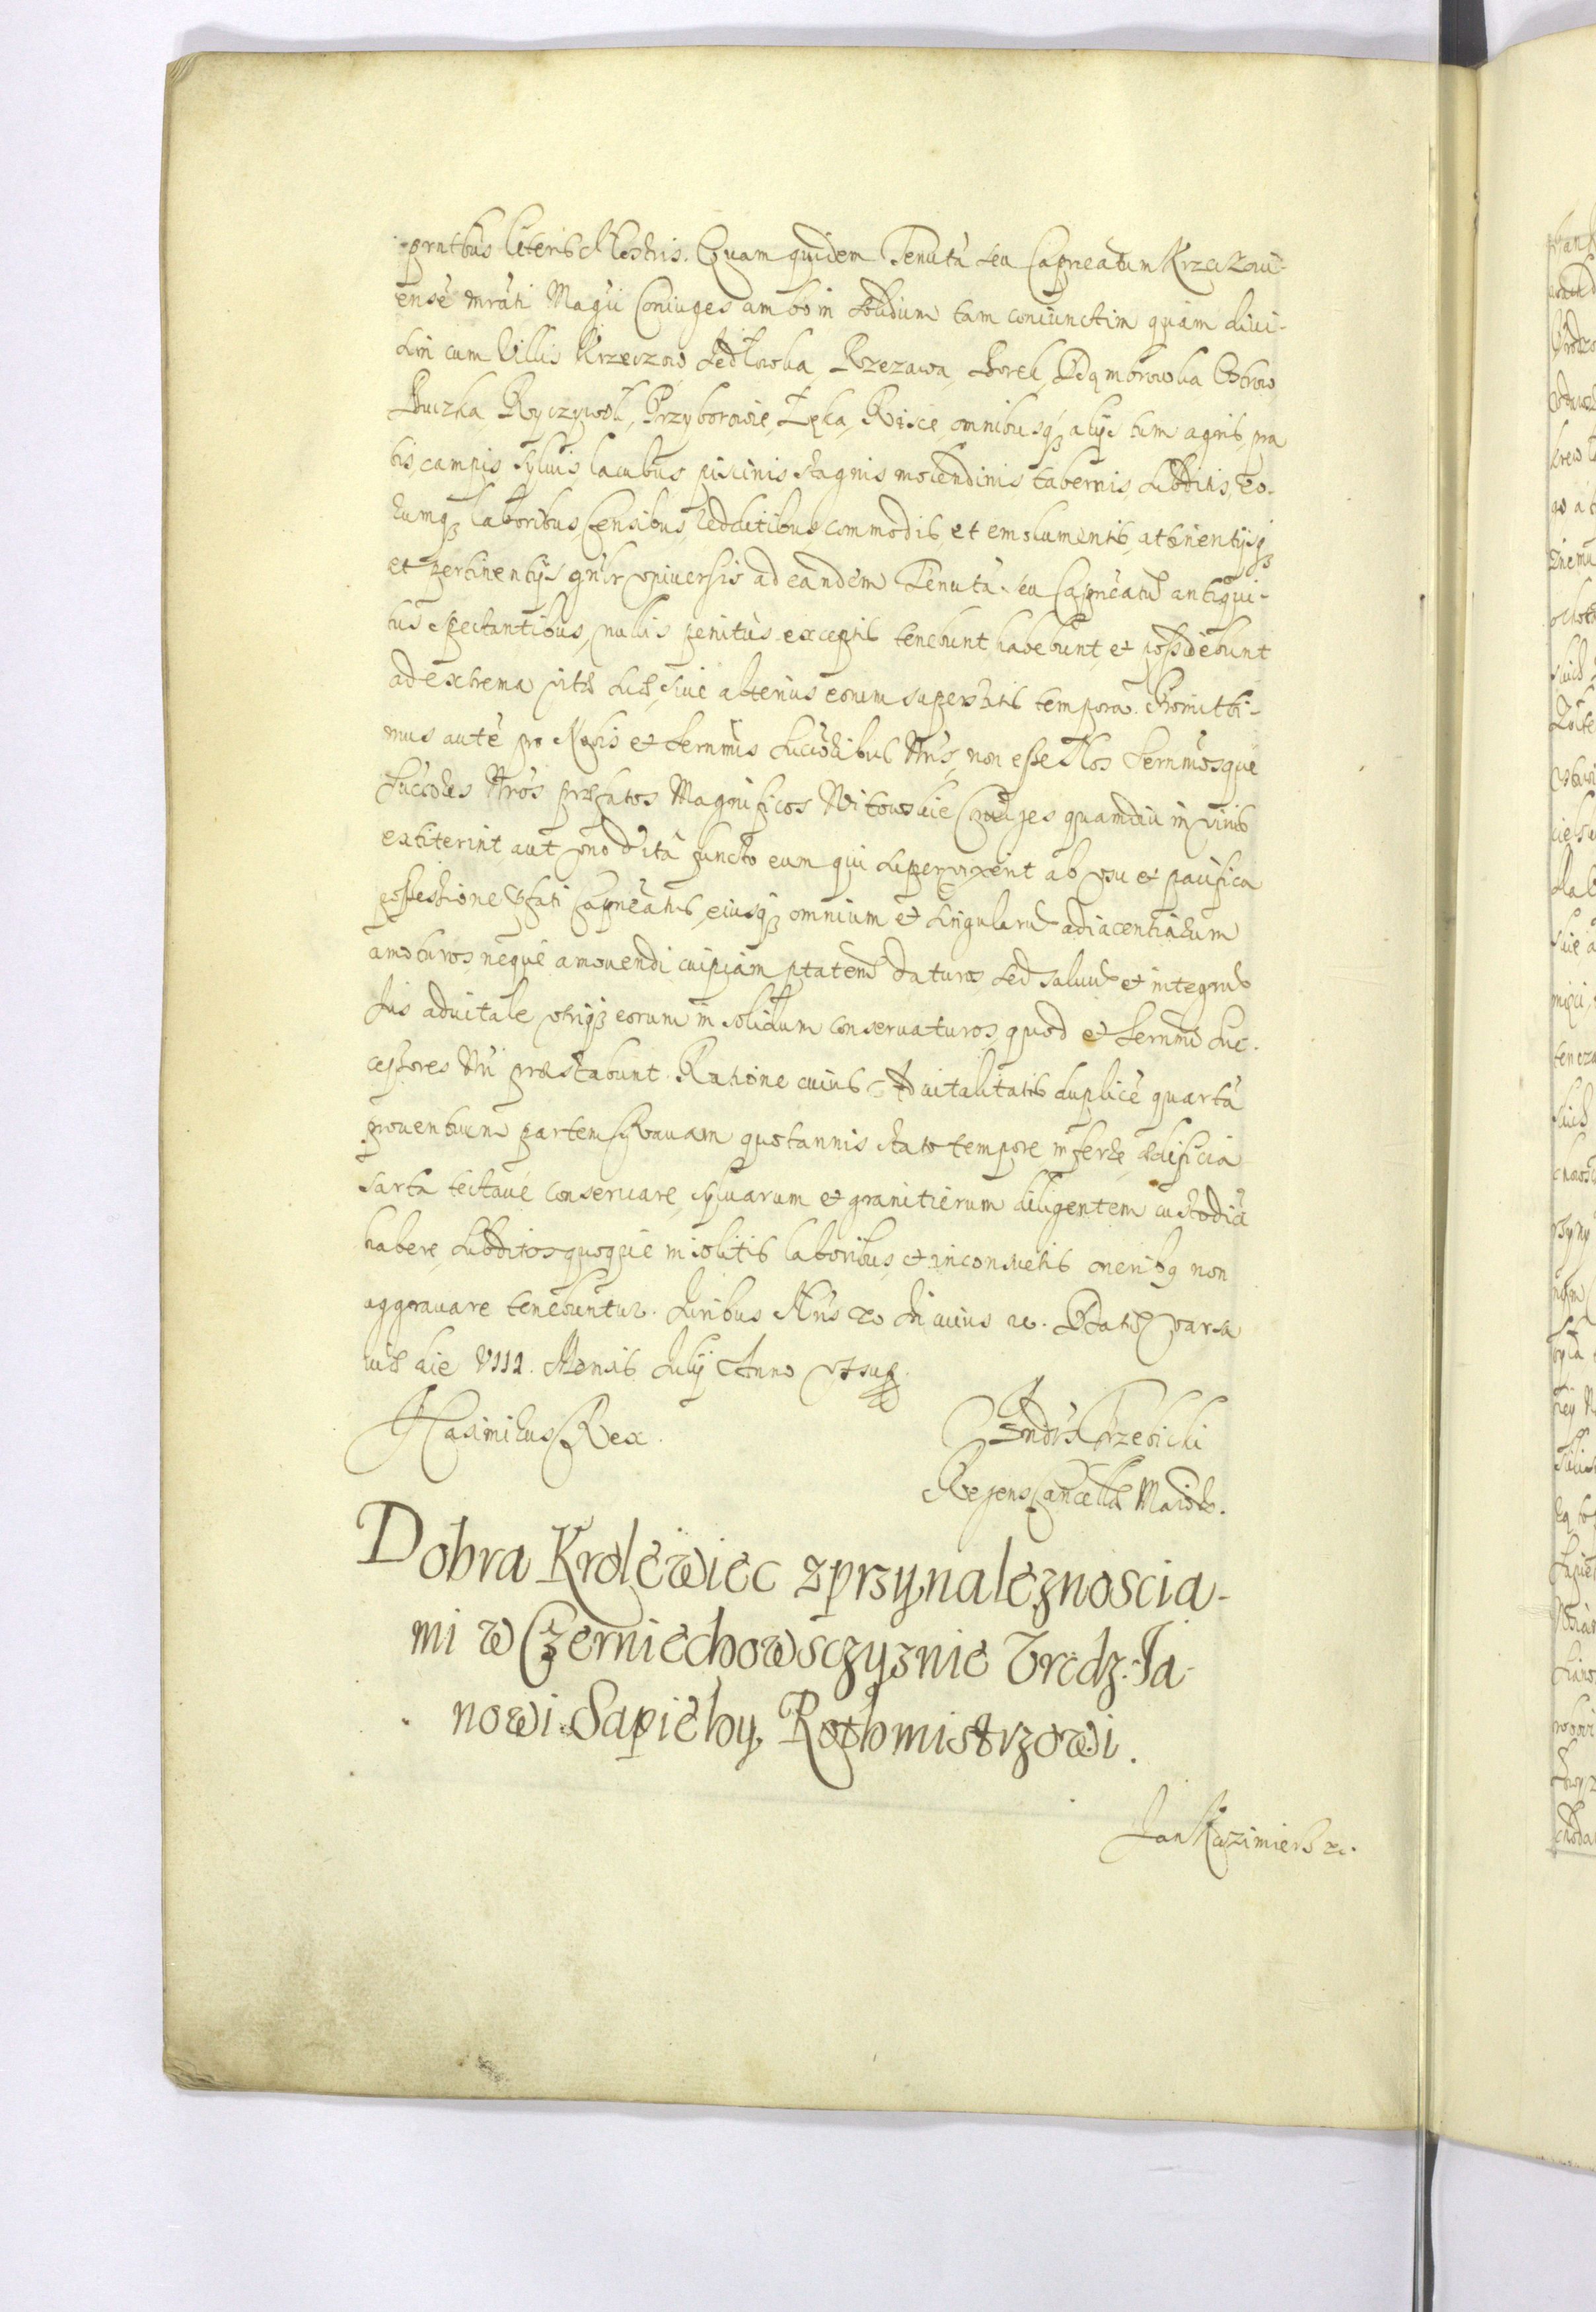 prntbus literis Nostris. Quam quidem Tenutā seu Capneatum Krzeczow-
ensē mrāti Magcī Coniuges ambo in solidum tam coniunctim quam divi-
sim cum Villis Krzeczow Jedłowka, Rzezawa, Borek, Dąmbrowka Ostrow
Buczka, Ryczywoł, Przyborowie, Łęka, omnibusqʒ alijs tum agris, pra
tis, campis sylvis, lacubus, piscinis, stagnis molendinis tabernis subditis, eo-
rumqʒ laboribus, censibus, redditibus commodis, et emolumentis, attinentijsqʒ
et pertinentijs gnlr universis ad eandem Tenutā seu Capneatū antiqui-
tus spectantibus, nullis penitus exceptis tenebunt, habebunt, et possidebunt
ad extrema vitæ suæ, sive alterius eorum superstitis tempora. Promitti-
mus autē pro Nobis et Sernmis Succrībus Nris, non esse Nos Sernmosque
Succres Nros præfatos Magnificos Witowskie Coniuges quamdiu in vivis
extiterint aut uno vitā functo eum qui supervixerit ab usu et pacifica
possessione pfati Capneatus, eiusqʒ omnium et singularū adiacentiarum
amoturos, neque amovendi cuipiam ptatem daturos sed salvū et integrū
Jus advitale utriqʒ eorum in solidum conservaturos, quod et Sernmi Suc-
cessores Nri præstabunt. Ratione cuius Advitalitatis duplicē quartā
proventuum partem Ravam quotannis stato tempore inferre, ædificia
sarta tectave conservare, sylvarum et granitierum diligentem custodiā
habere, subditos quoque insolitis laboribus, et inconsuetis oneribʒ non
aggravare tenebuntur. Juribus Nris &c In cuius &c. Datū Varsa
viæ die VIII. Mensis Julij Anno ut supra
J Casimirus Rex.
Andrs Trzebicki
Regens Cancellæ Maioris.
Dobra Krolewiec z przynaleznoscia-
mi w Czerniechowsczyznie Vrodz. Ja-
nowi Sapiehy Rothmistrzowi.
Jan Kazimierz &c.